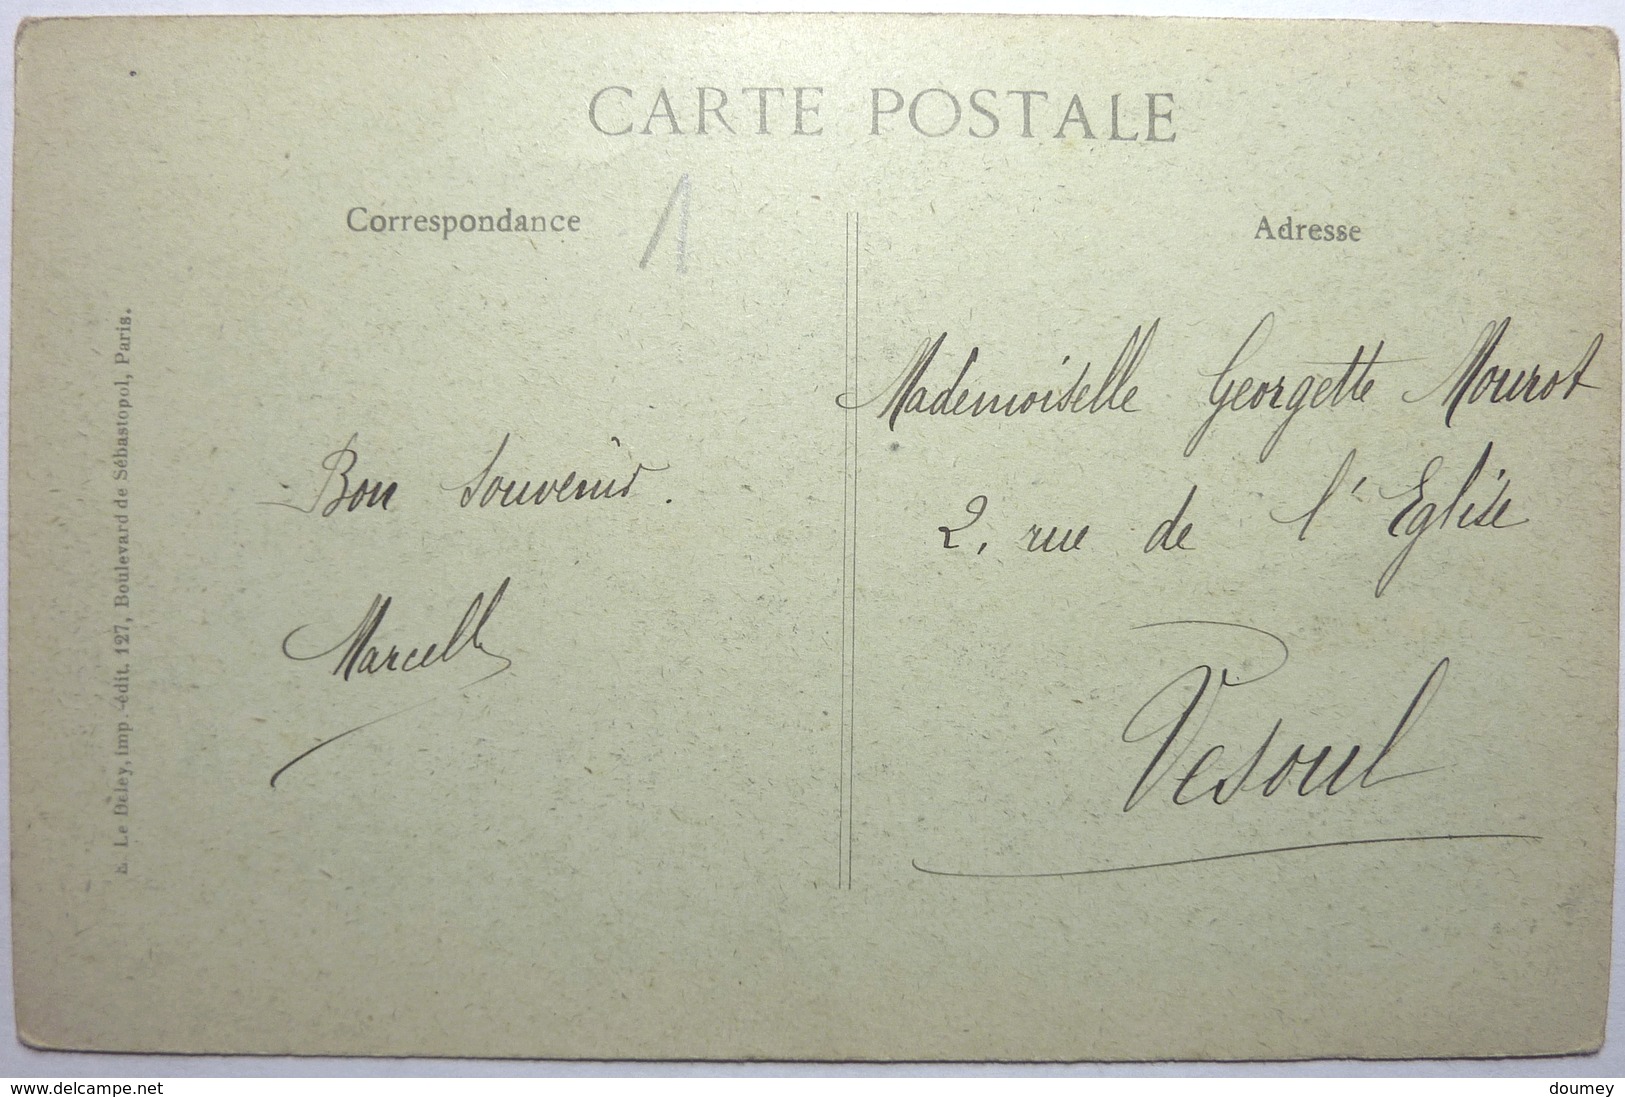 CARTE POSTALE
Correspondance
1
Adresse
Bon Souvenir.
Marcelle
Mademoiselle Georgette Mourot
2, rue de l'Eglise
Vesoul
Le Deley, imp.-édit. 127, Boulevard de Sébastopol, Paris.
www.delcampe.net
doumey